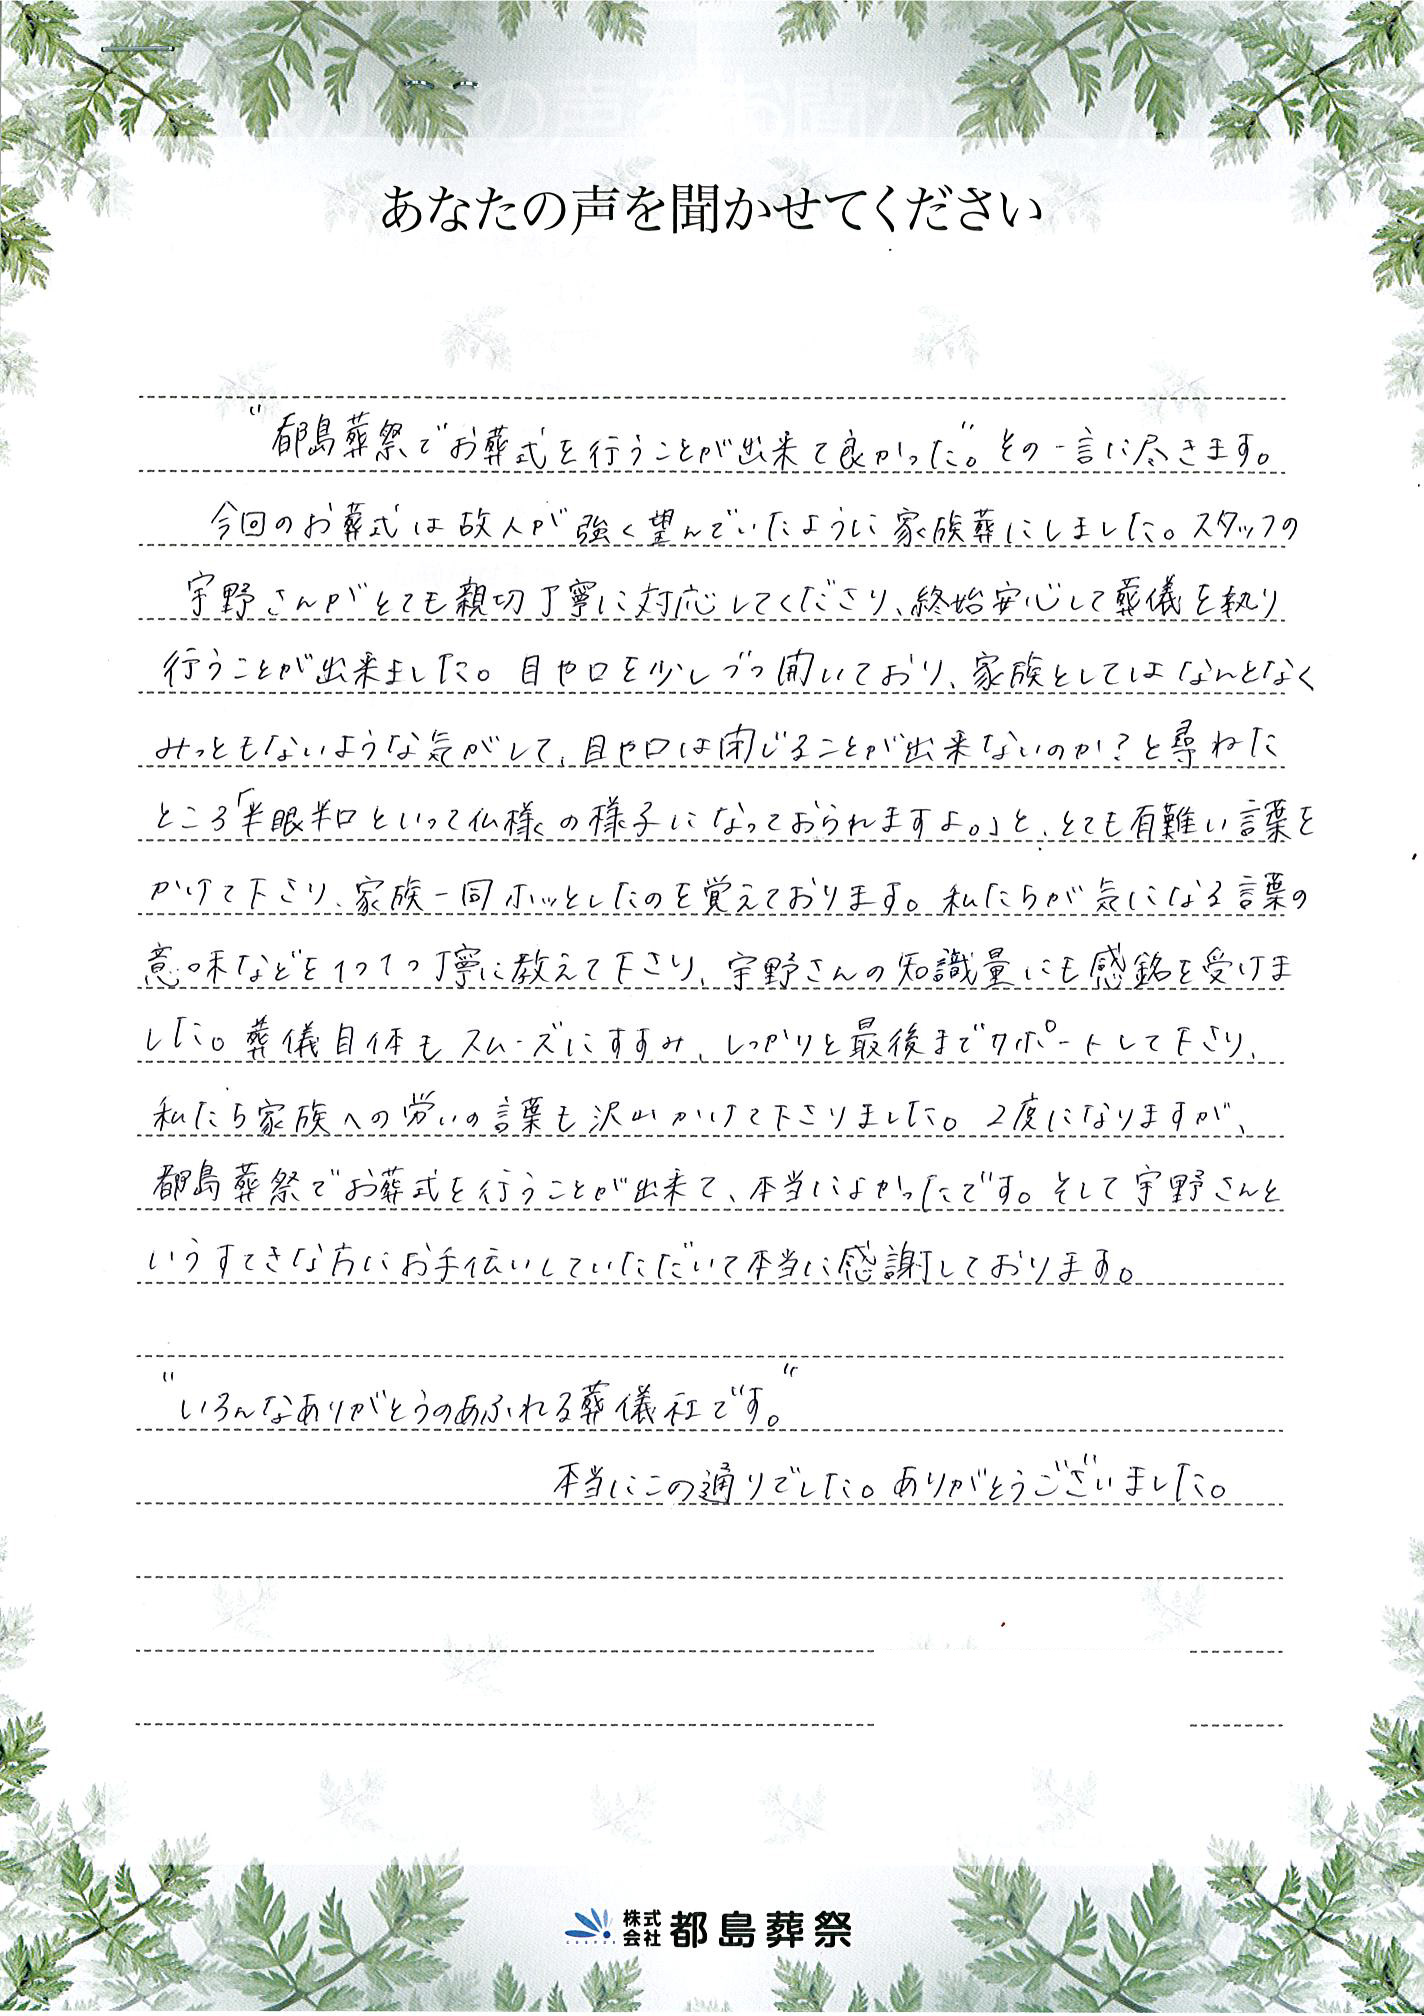 あなたの声を聞かせてください
"都島葬祭でお葬式を行うことが出来て良かった"。その一言に尽きます。
今回のお葬式は故人が強く望んでいたように家族葬にしました。スタッフの
宇野さんがとても親切丁寧に対応してくださり、終始安心して葬儀を執り
行うことが出来ました。目や口を少しづつ開いており、家族としてはなんとなく
みっともないような気がして、目や口は閉じることが出来ないのか?と尋ねた
ところ「半眼半口といって仏様の様子になっておられますよ。」と、とても有難い言葉を
かけて下さり、家族一同ホッとしたのを覚えております。私たちが気になる言葉の
意味などを1つ1つ丁寧に教えて下さり、宇野さんの知識量にも感銘を受けま
した。葬儀自体もスムーズにすすみ、しっかりと最後までサポートして下さり、
私たち家族への労いの言葉も沢山かけて下さりました。2度になりますが、
都島葬祭でお葬式を行うことが出来て、本当によかったです。そして宇野さんと
いうすてきな方にお手伝いしていただいて本当に感謝しております。
"いろんなありがとうのあふれる葬儀社です。"
本当にこの通りでした。ありがとうございました。
株式会社 都島葬祭